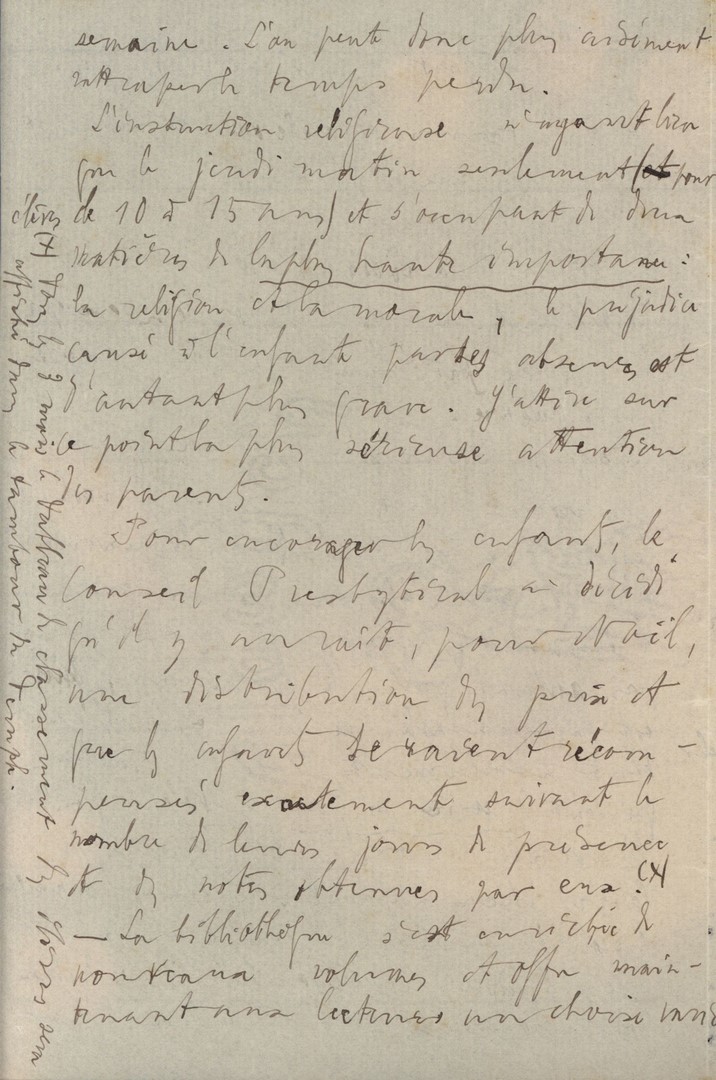 semaine. L'on peut donc plus aisément
rattraper le temps perdu.
L'instruction religieuse n'ayant lieu
que le jeudi matin seulement (et pour
de 10 à 15 ans) et s'occupant de deux
matières de la plus haute importance :
la religion et la morale, le préjudice
causé à l'enfant par ses absences est
d'autant plus grave. J'attire sur
ce point la plus sérieuse attention
des parents.
Pour encourager les enfants, le
Conseil Presbytéral a décidé
qu'il y aurait, pour Noël,
une distribution des prix et
que les enfants seraient récom-
pensés exactement suivant le
nombre de leurs jours de présence
et des notes obtenues par eux. (x)
— La bibliothèque s'est enrichie de
nouveaux volumes et offre main-
tenant aux lecteurs un choix varié
élèves
(x) Tous les 3 mois le tableau de classement des élèves sera
affiché dans le tambour du Temple.